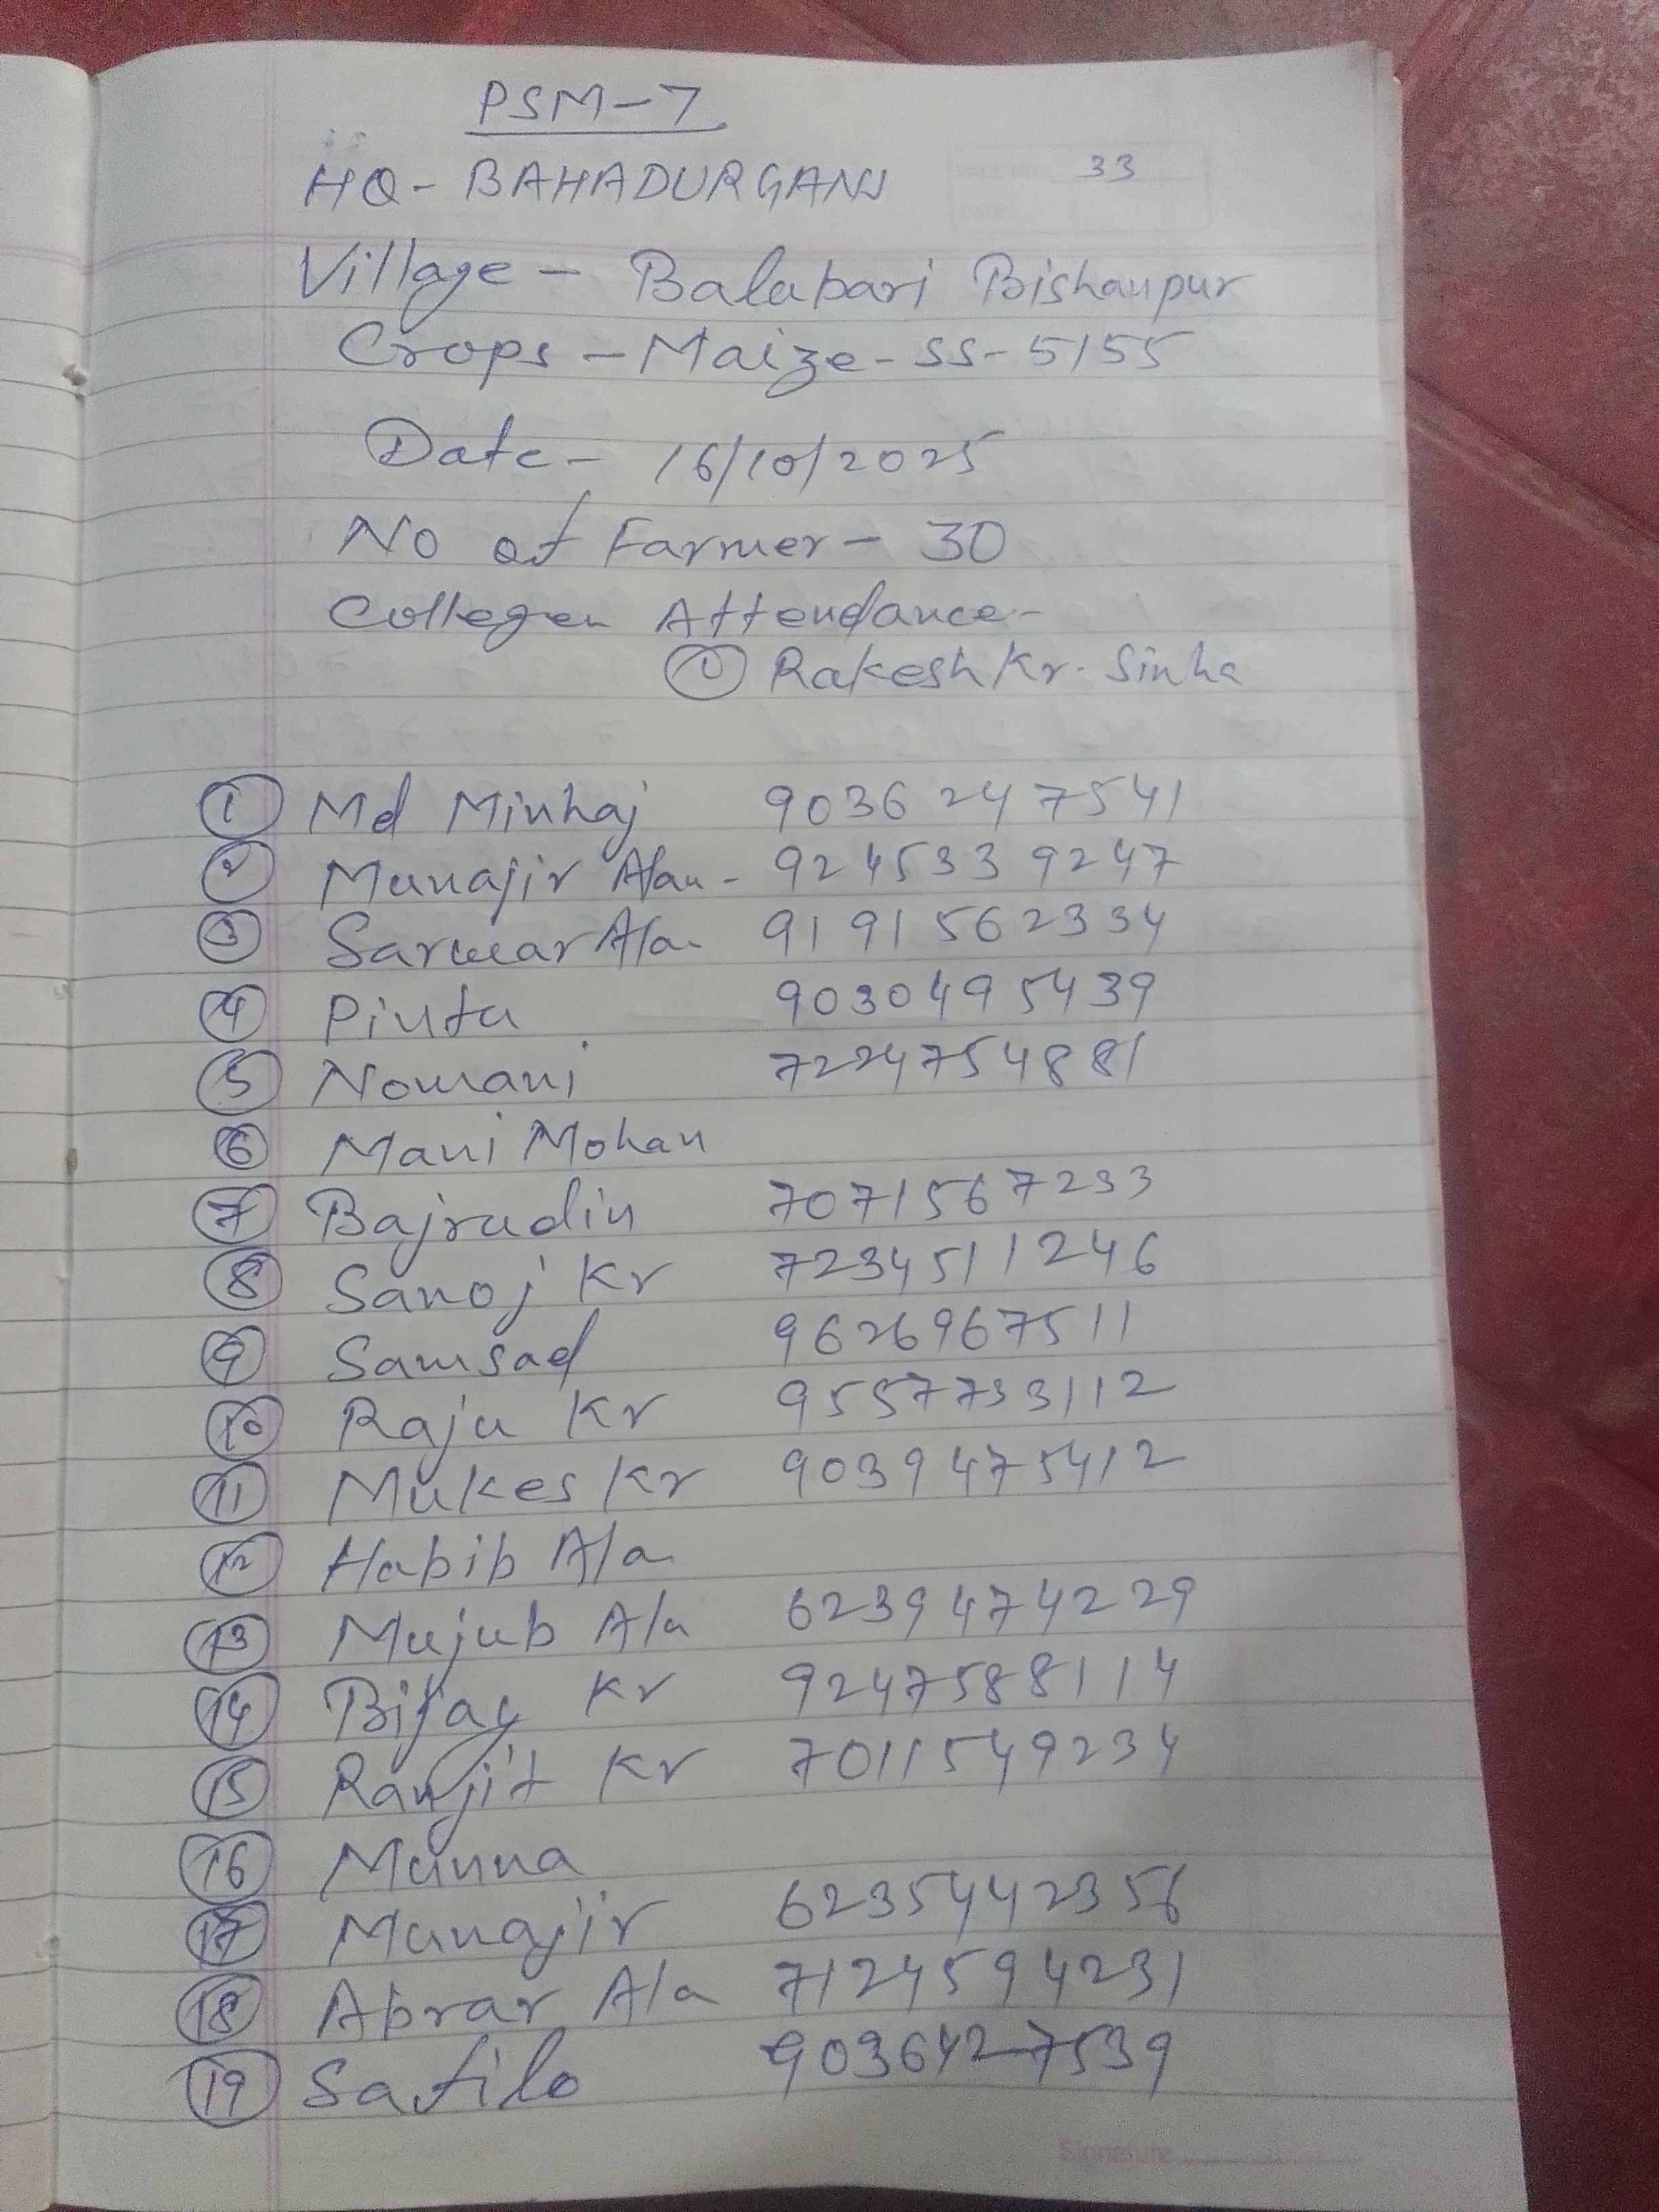 PSM-7
PAGE NO. 33
DATE:
HQ- BAHADURGANJ
Village - Balabari Bishanpur
Crops - Maize - SS-5155
Date- 16/10/2025
No of Farmer - 30
Collegen Attendance-
① Rakesh Kr. Sinha
① Md Minhaj 9036247541
② Munajir Alam - 9245339247
③ Sarwar Ala 9191562334
④ Pintu 9030495439
⑤ Nomani 7224754881
⑥ Mani Mohan
⑦ Bajrudin 7071567233
⑧ Sanoj Kr 7234511246
⑨ Samsad 9626967511
⑩ Raju Kr 9557733112
⑪ Mukes Kr 9039475412
⑫ Habib Ala
⑬ Mujub Ala 6239474229
⑭ Bijay Kr 9247588114
⑮ Ranjit Kr 7011549234
⑯ Munna
⑰ Munajir 6235442356
⑱ Abrar Ala 7124594231
⑲ Safilo 9036427539
Signature